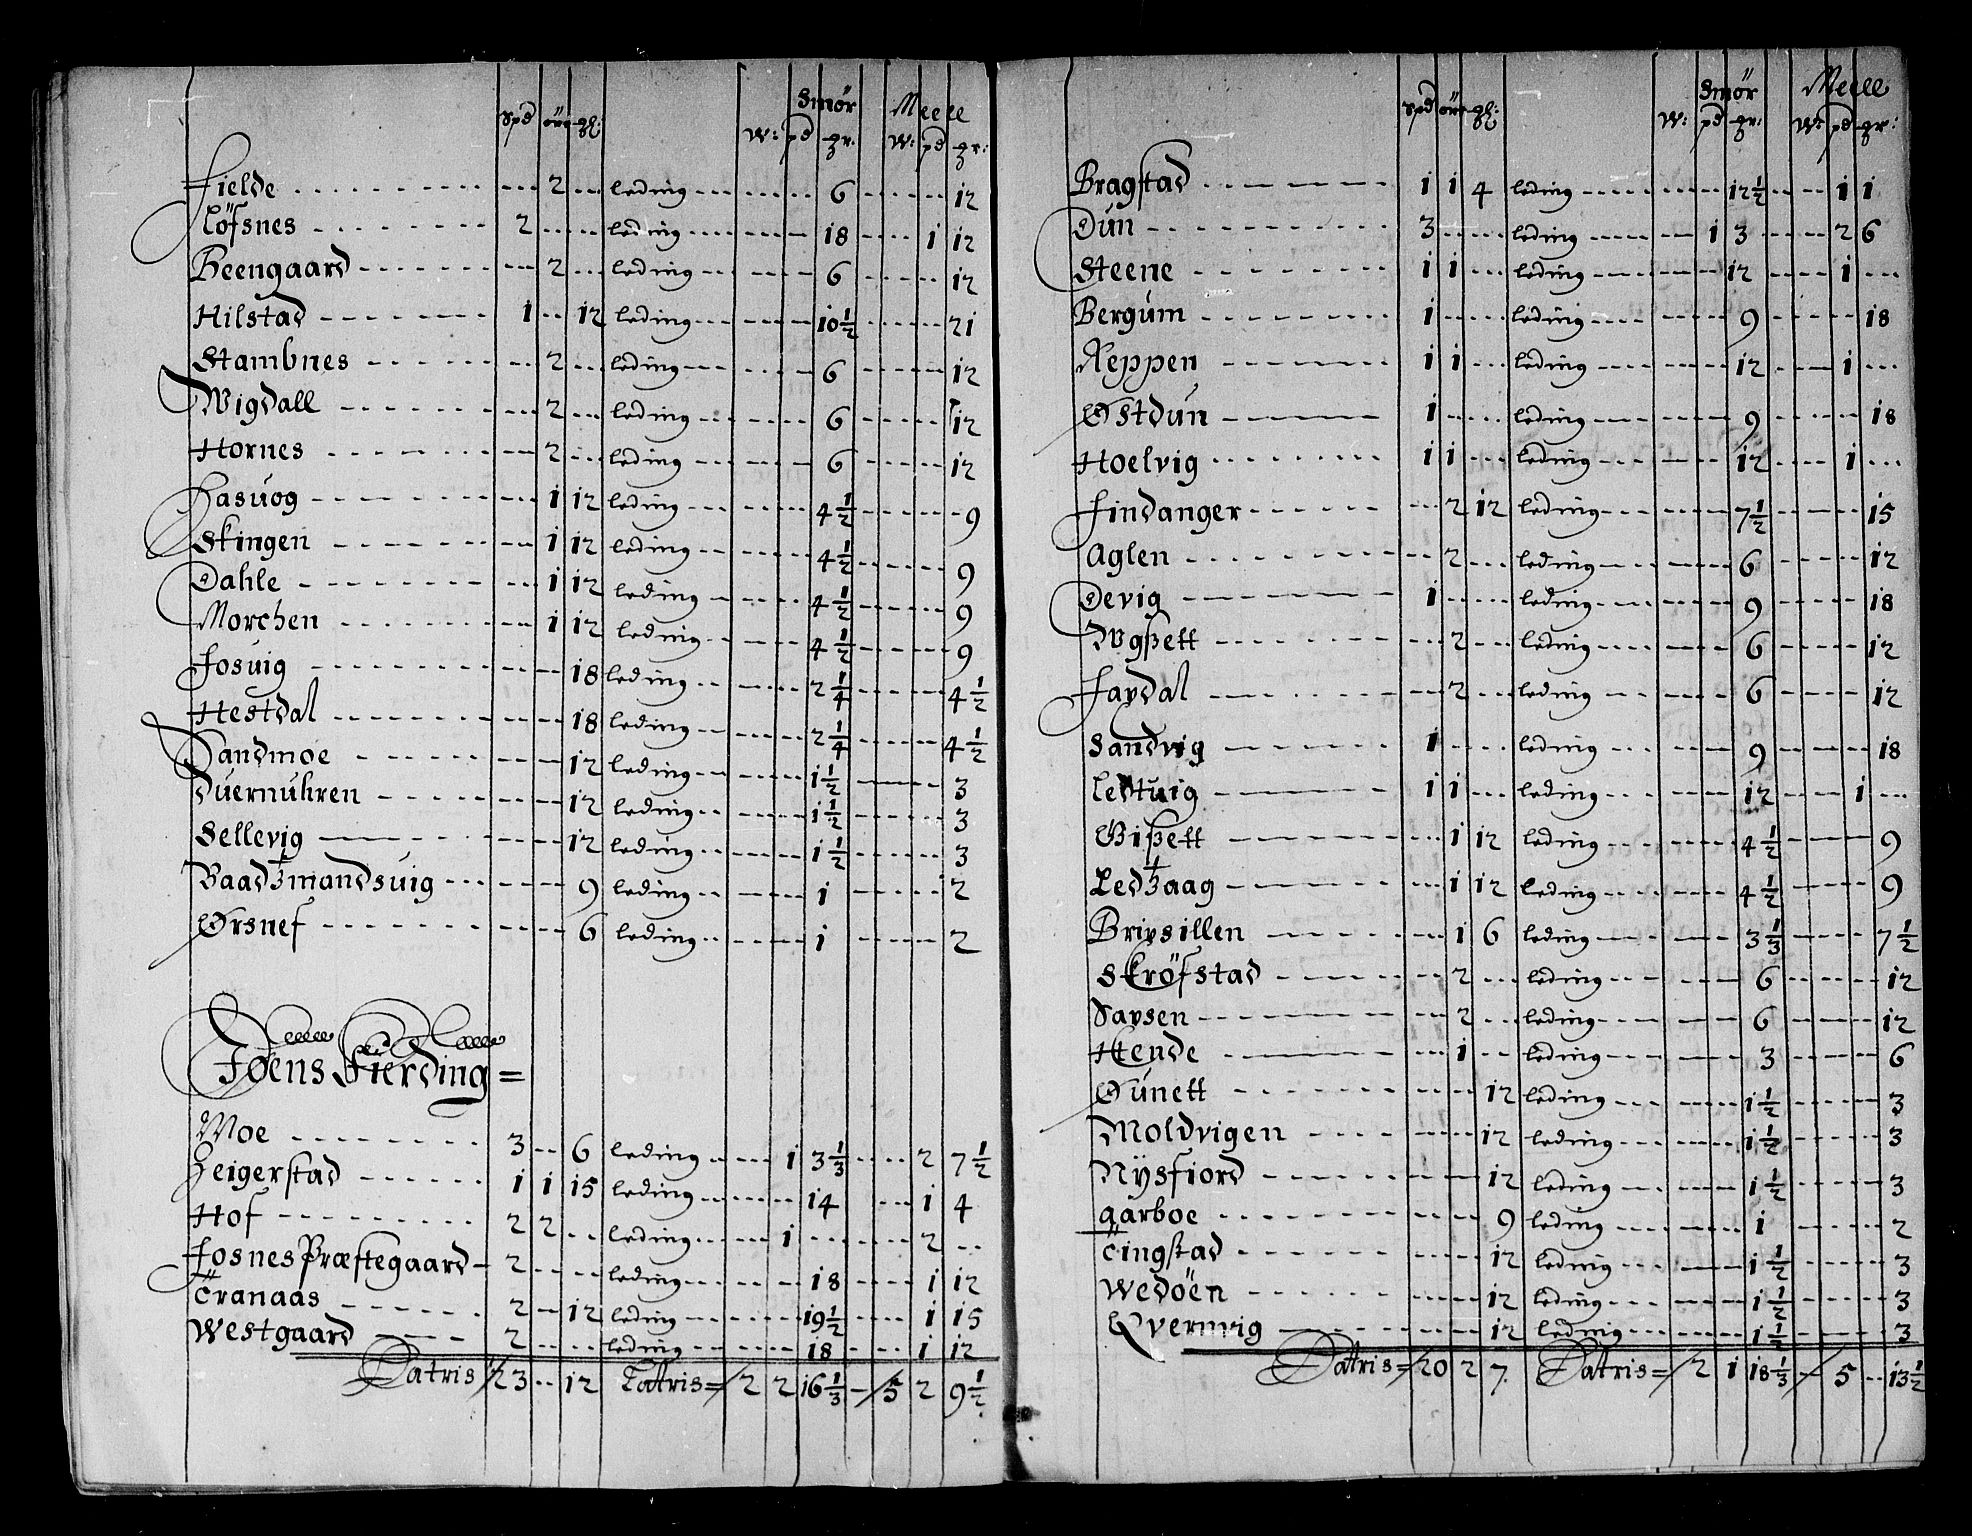 Spd öre gl: Smör Meell
W: pd gr. W: pd gr:
Fielde 2 leding 6 12
Löfsnes 2 leding 18 1 12
Beengaard 2 leding 6 12
Hilstad 1 12 leding 10½ 21
Stambnes 2 leding 6 12
Wigdall 2 leding 6 12
Hornes 2 leding 6 12
Hasuog 1 12 leding 4½ 9
Skingen 1 12 leding 4½ 9
Dahle 1 12 leding 4½ 9
Morchen 1 12 leding 4½ 9
Fosuig 18 leding 2¼ 4½
Hestdal 18 leding 2¼ 4½
Sandmoe 12 leding 1½ 3
Duernuhren 12 leding 1½ 3
Sellevig 12 leding 1½ 3
Baadtzmandsuig 9 leding 1 2
Ørsnef 6 leding 1 2
Jøens Fierding =
Moe 3 6 leding 1 3⅓ 2 7½
Zeigerstad 1 1 15 leding 14 1 4
Hof 2 2 leding 1 2
Fosnes Præstegaard 2 leding 18 1 12
Tranaas 2 12 leding 19½ 1 15
Westgaard 2 leding 18 1 12
Latris 23 12 Latris 2 2 16⅓ 5 2 9½
Spd öre gl: Smör Meele
W: pd gr: W: pd gr:
Bragstad 1 1 4 leding 12½ 1 1
Dun 3 leding 1 3 2 6
Steene 1 1 leding 12 1
Bergum 1 leding 9 18
Reppen 1 1 leding 12 1
Østdun 1 leding 9 18
Hoelvig 1 1 leding 12 1
Findanger 2 12 leding 7½ 15
Aglen 2 leding 6 12
Devig 1 leding 9 18
Dvgßett 2 leding 6 12
Fardal 2 leding 6 12
Sandvig 1 leding 9 18
Ledtuig 1 1 leding 12 1
Gißett 1 12 leding 4½ 9
Ledtzaag 1 12 leding 4½ 9
Brivsillen 1 6 leding 3⅓ 7½
Skröfstad 2 leding 6 12
Savsen 2 leding 6 12
Hende 1 leding 3 6
Gunett 12 leding 1½ 3
Moldvigen 12 leding 1½ 3
Nÿsfiord 12 leding 1½ 3
aarboe 9 leding 1 2
Tingstad 12 leding 1½ 3
Wedöen 12 leding 1½ 3
Qvernvig 12 leding 1½ 3
Latris = 20 2 7 Latris = 2 1 18⅓ 5 13½